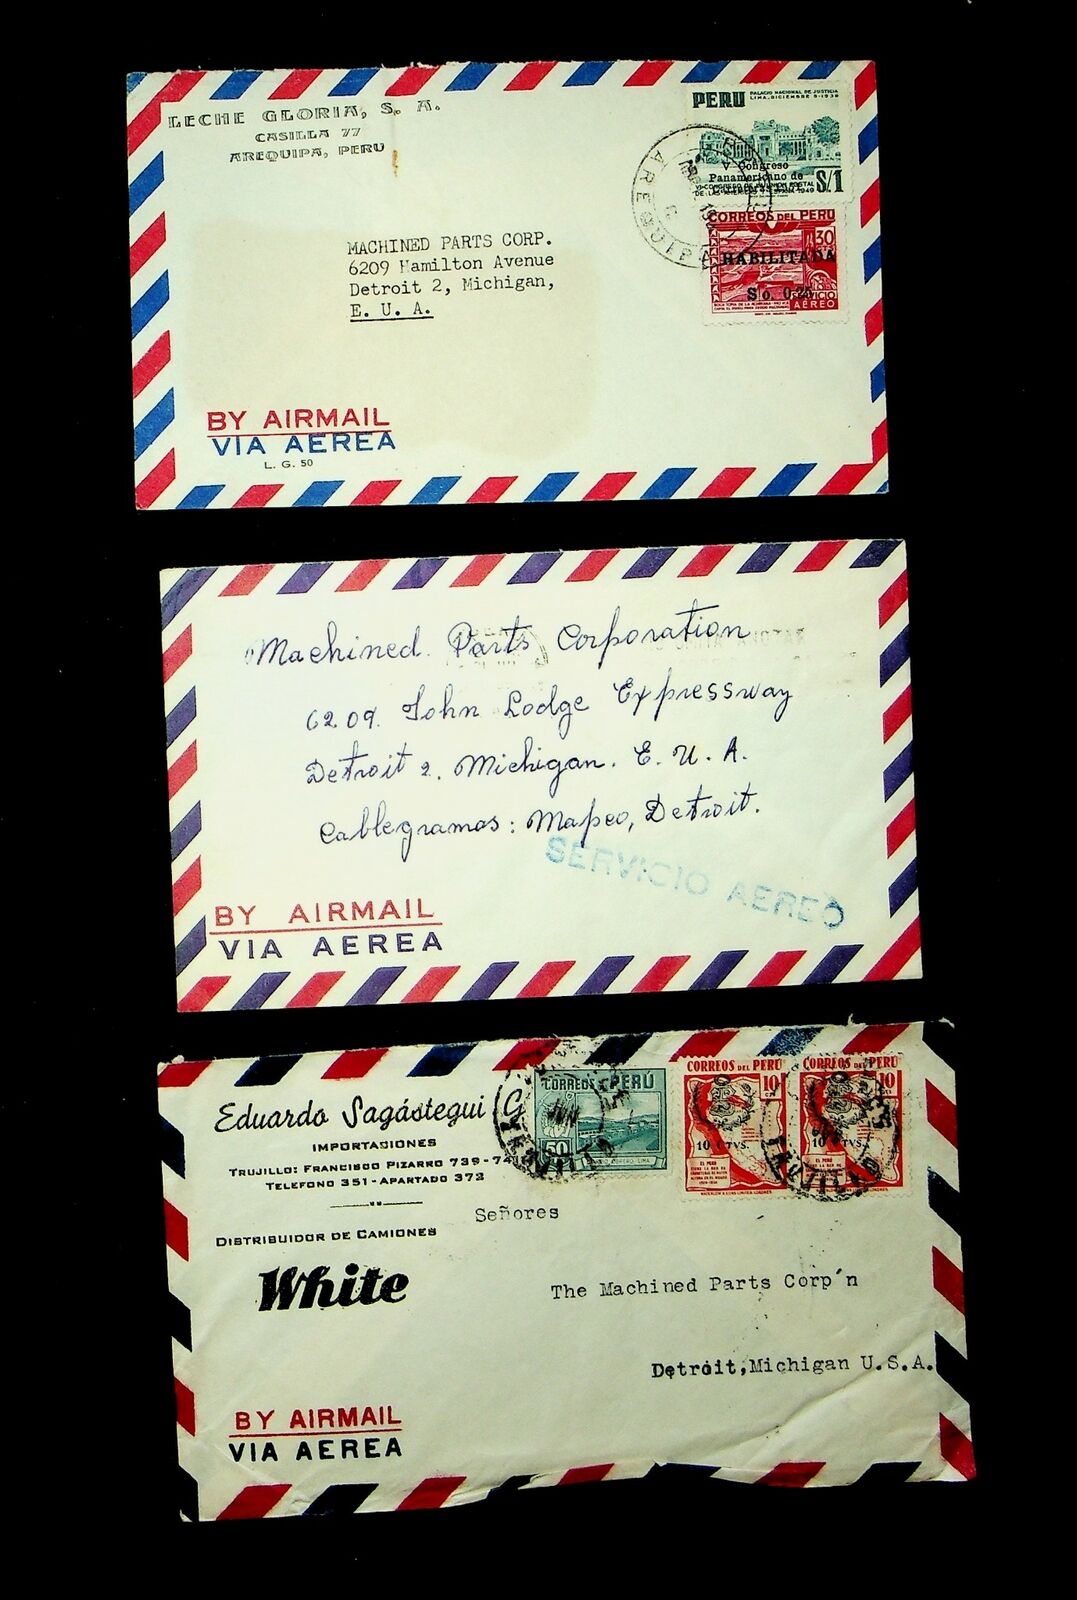 LECHE GLORIA, S. A.
CASILLA 77
AREQUIPA, PERU
PERU
PALACIO NACIONAL DE JUSTICIA
LIMA, DICIEMBRE 5-1938
V Congreso
Panamericano de
VI CONGRESO DE LA UNION POSTAL
DE LAS AMERICAS
S/.1
AREQUIPA
CORREOS DEL PERU
30
HABILITADA
S/o. 0.25
SERVICIO
AEREO
MACHINED PARTS CORP.
6209 Hamilton Avenue
Detroit 2, Michigan,
E. U. A.
BY AIRMAIL
VIA AEREA
L. G. 50
Machined Parts Corporation
6209. John Lodge Expressway
Detroit 2. Michigan. E. U. A.
Cablegramas: Mapco, Detroit.
SERVICIO AEREO
BY AIRMAIL
VIA AEREA
Eduardo Sagástegui G
IMPORTACIONES
TRUJILLO: FRANCISCO PIZARRO 739-74
TELEFONO 351 - APARTADO 372
DISTRIBUIDOR DE CAMIONES
White
CORREOS PERÚ
50
JUN
TRUJILLO
CORREOS DEL PERU
10
10 CTVS.
EL PERU
CORREOS DEL PERU
10
10 CTVS.
EL PERU
TRUJILLO
Señores
The Machined Parts Corp'n
Detroit, Michigan U.S.A.
BY AIRMAIL
VIA AEREA